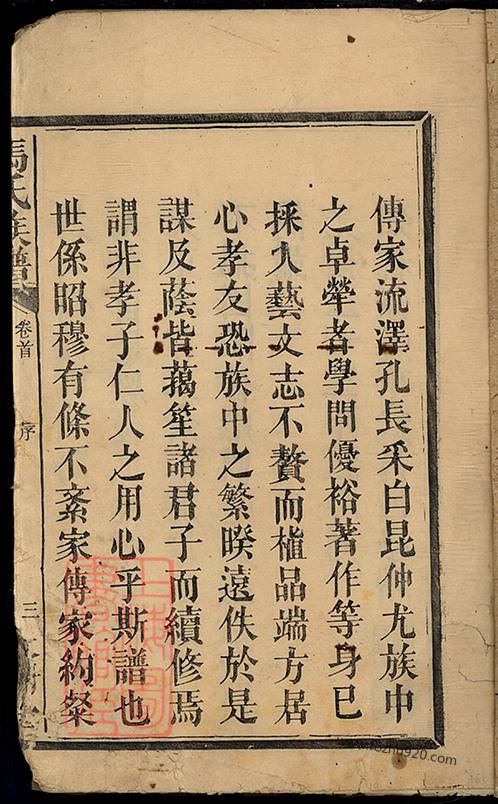 傳家流澤孔長采白昆仲尤族中
之卓犖者學問優裕著作等身已
採入藝文志不贅而植品端方居
心孝友恐族中之繁暌遠佚於是
謀及蔭皆藹笙諸君子而續修焉
謂非孝子仁人之用心乎斯譜也
世係昭穆有條不紊家傳家約粲
馮氏族譜
卷首
序
三